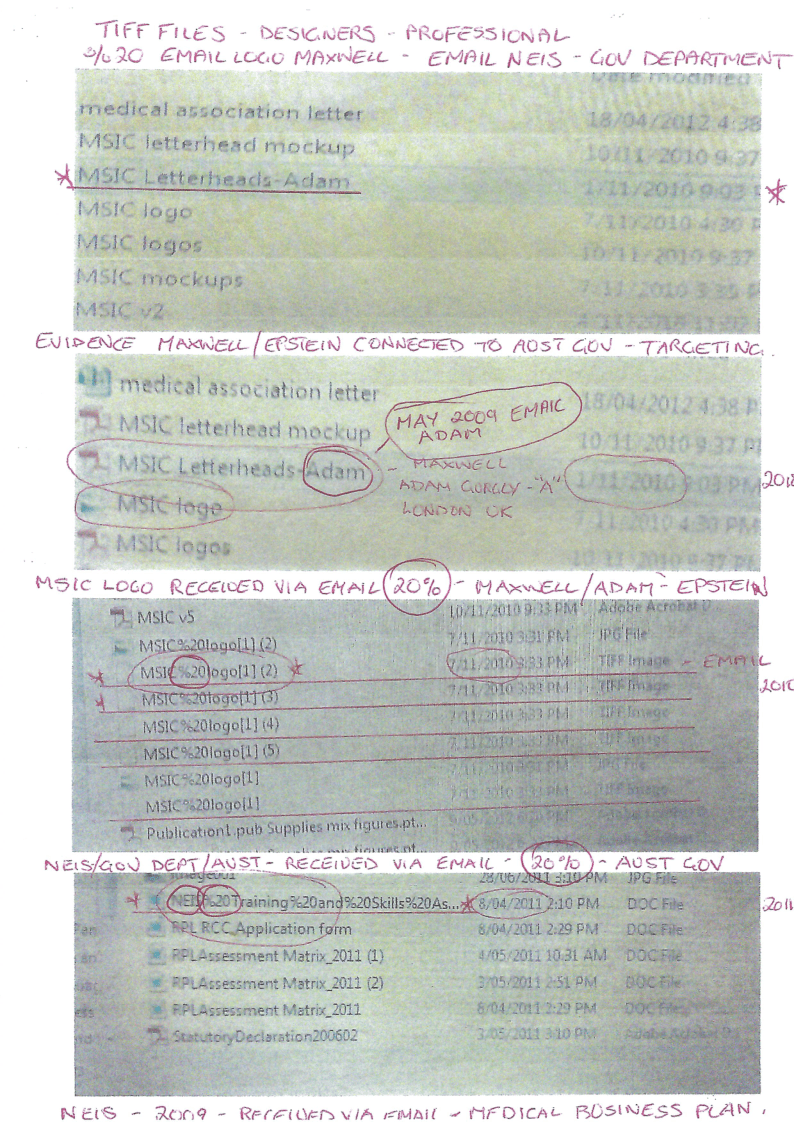 TIFF FILES - DESIGNERS - PROFESSIONAL
%20 EMAIL LOGO MAXWELL - EMAIL NEIS - GOV DEPARTMENT
Date modified
medical association letter 18/04/2012 4:38
MSIC letterhead mockup 10/11/2010 9:37
MSIC Letterheads-Adam 1/11/2010 9:03 P
MSIC logo 7/11/2010 4:30 P
MSIC logos 10/11/2010 9:37
MSIC mockups 7/11/2010 3:35 P
MSIC v2
EVIDENCE MAXWELL/EPSTEIN CONNECTED TO AUST GOV - TARGETING.
medical association letter 18/04/2012 4:38 P
MAY 2009 EMAIL
ADAM
MSIC letterhead mockup 10/11/2010 9:37 P
MSIC Letterheads-Adam - MAXWELL 1/11/2010 9:03 PM 201
ADAM - "A"
MSIC logo LONDON UK 7/11/2010 4:30 PM
MSIC logos 10/11/2010 9:37 PM
MSIC LOGO RECEIVED VIA EMAIL 20% - MAXWELL/ADAM - EPSTEIN
MSIC v5 10/11/2010 9:33 PM Adobe Acrobat D...
MSIC%20logo[1] (2) 7/11/2010 3:31 PM JPG File
MSIC%20logo[1] (2) 7/11/2010 3:33 PM TIFF Image - EMAIL
MSIC%20logo[1] (3) 7/11/2010 3:33 PM TIFF Image 2010
MSIC%20logo[1] (4) 7/11/2010 3:33 PM TIFF Image
MSIC%20logo[1] (5) 7/11/2010 3:33 PM TIFF Image
MSIC%20logo[1] 7/11/2010 JPG File
MSIC%20logo[1] 7/11/2010 TIFF Image
Publication1.pub Supplies mix figures.pt...
NEIS/GOV DEPT/AUST - RECEIVED VIA EMAIL - 20% - AUST GOV
image001 28/06/2011 3:10 PM JPG File
NEIS%20Training%20and%20Skills%20As... 8/04/2011 2:10 PM DOC File 2011
RPL RCC Application form 8/04/2011 2:29 PM DOC File
RPLAssessment Matrix_2011 (1) 4/05/2011 10:31 AM DOC File
RPLAssessment Matrix_2011 (2) 3/05/2011 2:51 PM DOC File
RPLAssessment Matrix_2011 8/04/2011 2:29 PM DOC File
StatutoryDeclaration200602 3/05/2011 3:10 PM Adobe Acrobat D
NEIS - 2009 - RECEIVED VIA EMAIL - MEDICAL BUSINESS PLAN.